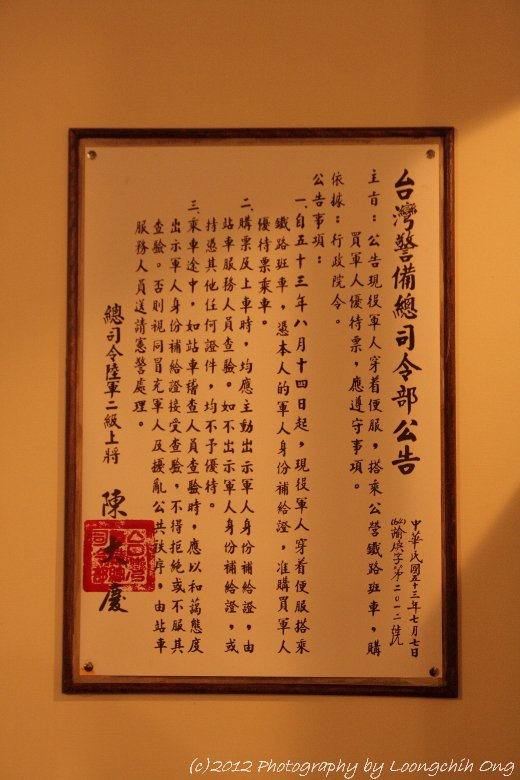 台灣警備總司令部公告
中華民國五十三年七月七日
字第二〇一二號
主旨：公告現役軍人穿着便服，搭乘公營鐵路班車，購
買軍人優待票，應遵守事項。
依據：行政院令。
公告事項：
一、自五十三年八月十四日起，現役軍人穿着便服搭乘
鐵路班車，憑本人的軍人身份補給證，准購買軍人
優待票乘車。
二、購票及上車時，均應主動出示軍人身份補給證，由
站車服務人員查驗。如不出示軍人身份補給證，或
持憑其他任何證件，均不予優待。
三、乘車途中，如站車稽查人員查驗時，應以和藹態度
出示軍人身份補給證接受查驗，不得拒絕或不服其
查驗。否則視同冒充軍人及擾亂公共秩序，由站車
服務人員送請憲警處理。
總司令陸軍二級上將 陳大慶
(c)2012 Photography by Loongchih Ong